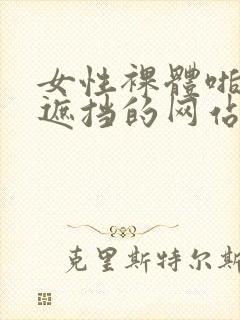 女性裸體啪
遮挡的网站
克里斯特尔斯